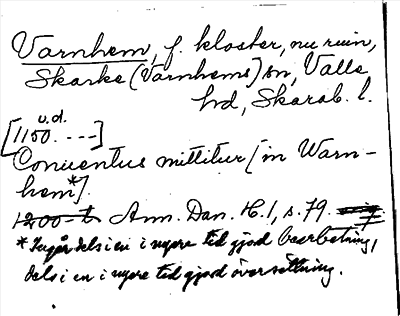 Varnhem, f. kloster, nu ruin,
Skarke (Varnhems) sn, Valle
hd, Skarab. l.
u.d.
[1150. ---]
Conventus mittitur [in Warn-
hem*].
1200-t. Ann. Dan. H. 1, s. 79.
* Ingår dels i en i nyare tid gjord bearbetning,
dels i en i nyare tid gjord översättning.